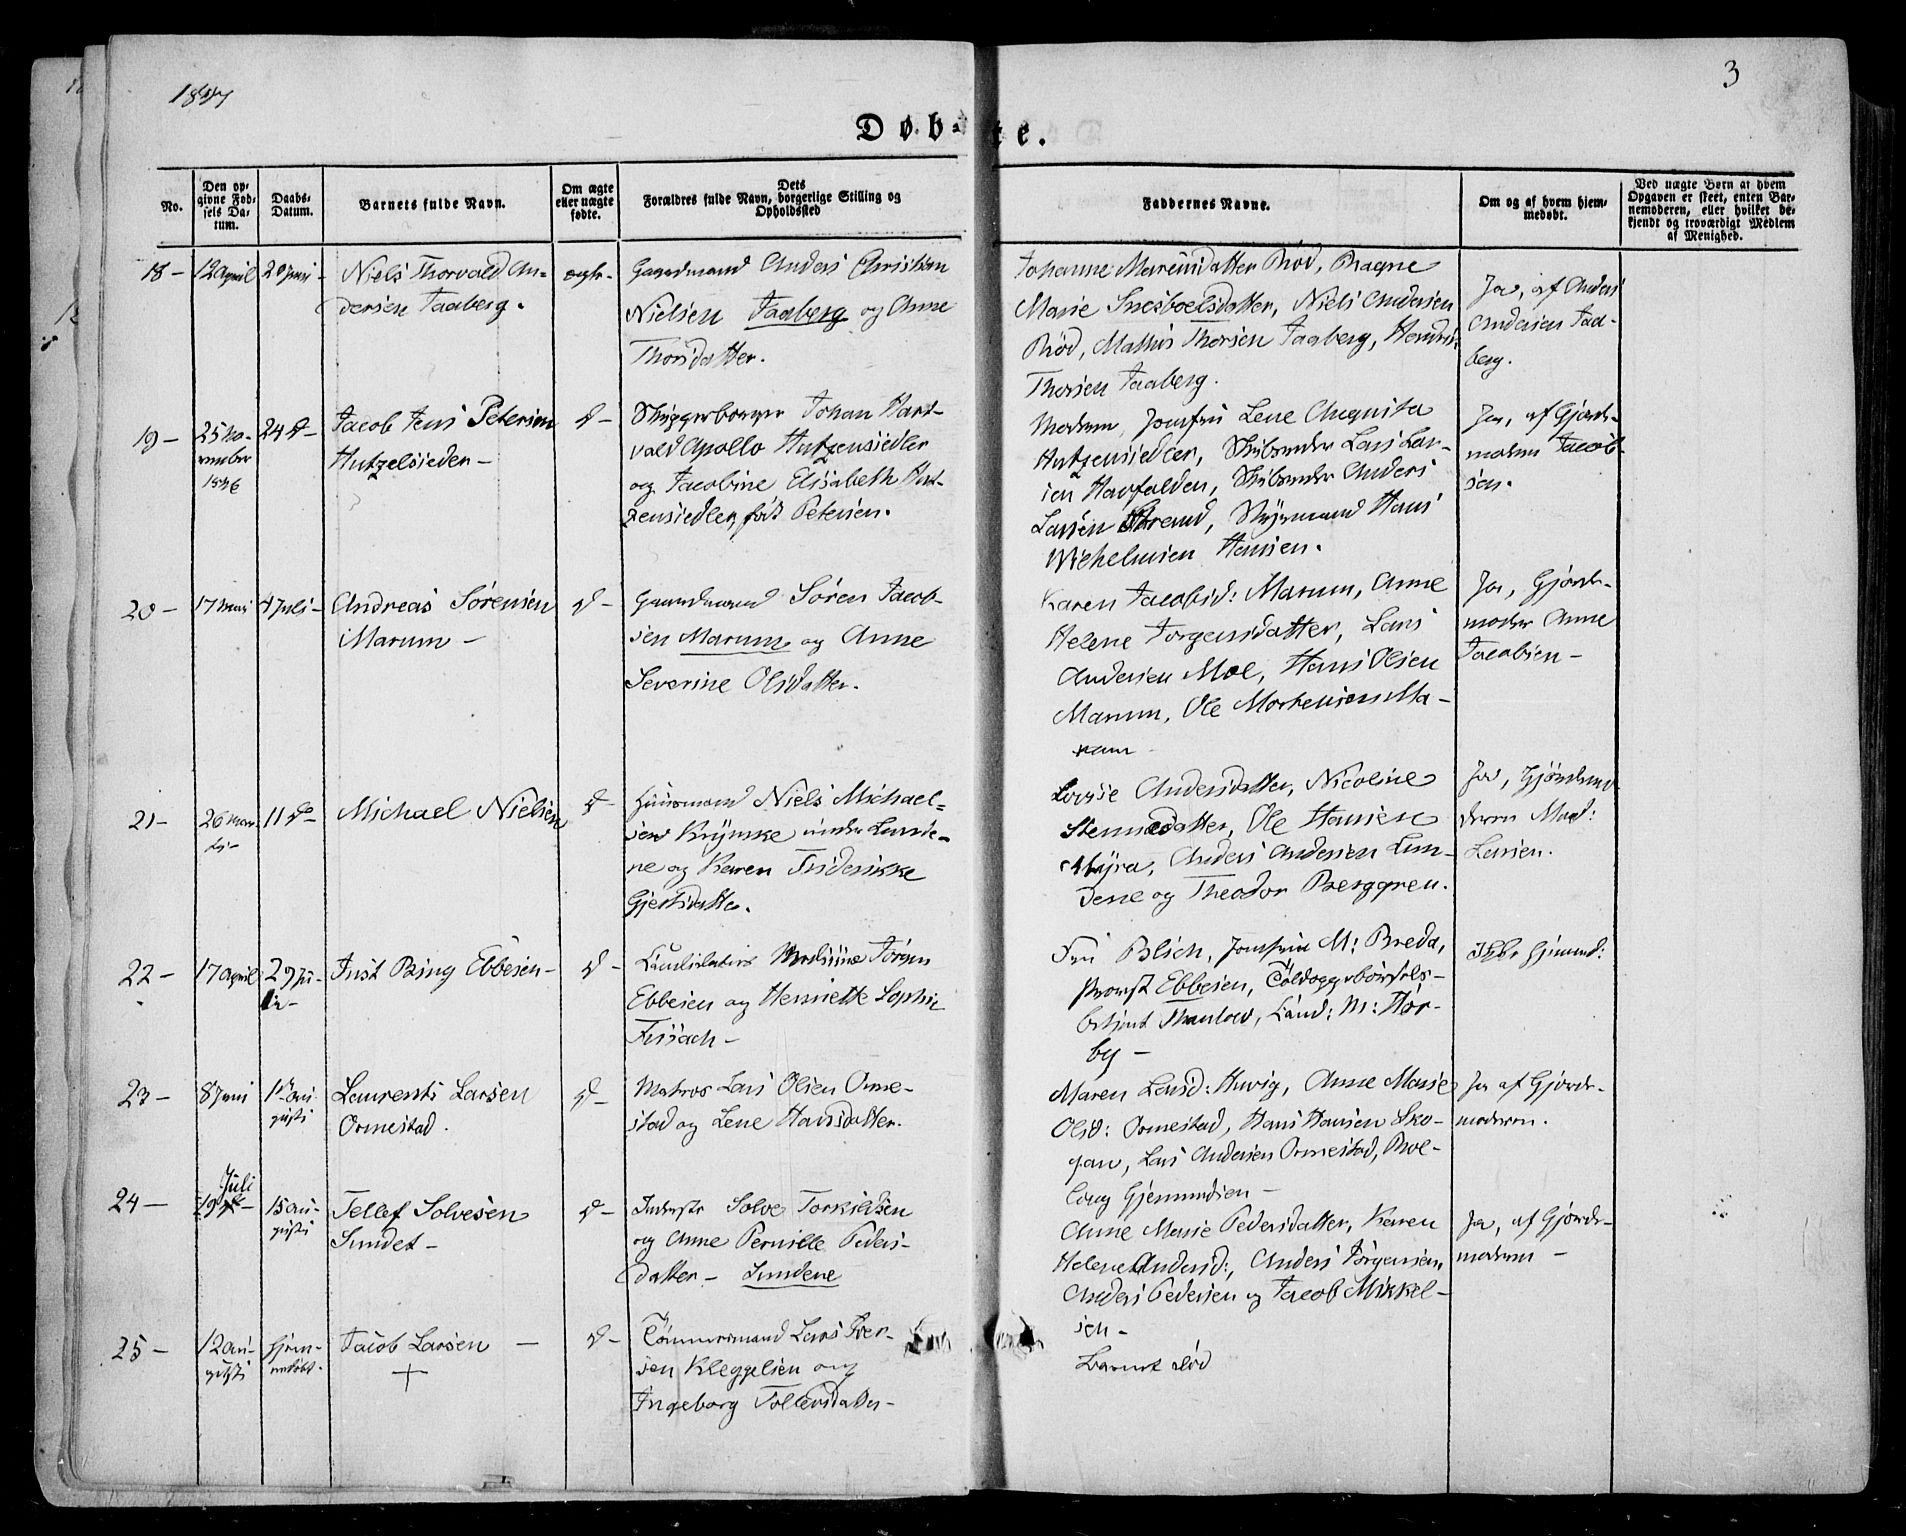 1847
3
Døb-te.
No.
Den op-
givne Fød-
sels Da-
tum.
Daabs-
Datum.
Barnets fulde Navn.
Om ægte
eller uægte
fødte.
Dets
Forældres fulde Navn, borgerlige Stilling og
Opholdssted
Faddernes Navne.
Om og af hvem hjem-
medøbt.
Ved uægte Børn at hvem
Opgaven er skeet, enten Bar-
nemoderen, eller hvilket be-
kjendt og troværdigt Medlem
af Menighed.
18 -
12 April
20 Juni -
Niels Thorvald An-
dersen Taaberg.
ægte -
Gaardmand Anders Christian
Nielsen Taaberg og Anne
Thorsdatter.
Johanne Marensdatter Röd, Ragne
Marie Snesboelsdatter, Niels Andersen
Röd, Mathis Thorsen Taaberg, Hendrik
Thorsen Taaberg.
Ja, af Anders
Andersen Taa-
berg.
19 -
25 No-
vember
1846
24 d -
Jacob Jens Petersen
Hutzelsieder -
d -
Johan Har-
vald Apollo Hutzensiedler
og Jacobine Elisabeth Hut-
zensiedler, föd Petersen.
Moderen, Jomfru Lene Augusta
Hutzensiedler, Lars Lar-
sen Havfalden, Anders
Larsen Strand, Styrmand Hans
Wilhelmsen Hansen.
Ja, af Gjorde-
moder Jacob-
sen.
20 -
17 Mai
4 Juli -
Andreas Sörensen
Marum -
d -
Gaardmand Sören Jacob-
sen Marum og Anne
Severine Olsdatter.
Karen Jacobsd: Marum, Anne
Helene Jörgensdatter, Lars
Andersen Moe, Hans Olsen
Marum, Ole Mortensen Ma-
rum -
Ja, Gjorde-
moder Anne
Jacobsen -
21 -
26 Mar-
ti -
11 d -
Michael Nielsen
d -
Huusmand Niels Michael-
sen Krymske under Lunde-
ne og Karen Friderikke
Gjertsdatter.
Lovise Andersdatter, Nicoline
Stennesdatter, Ole Hansen
Myra, Anders Andersen Lun-
dene og Theodor Berggren.
Ja, Gjordemo-
deren Mad:
Larsen.
22 -
17 April
29 Ju-
li -
Just Bing Ebbesen -
d -
Candidatus Medicinæ Jörgen
Ebbesen og Henriette Sophie
Fissach -
Fru Blich, Jomfru M: Breda,
Provst Ebbesen, Toldoppebørsels-
betjent Thaulow, Cand: M: Hör-
by -
Ikke hjemmed:
23 -
8 Juni
1 Au-
gusti
Laurents Larsen
Ormestad.
d -
Matros Lars Olsen Orme-
stad og Lene Hansdatter.
Maren Larsd: Hwvig, Anne Marie
Olsd: Ormestad, Hans Hansen Sko-
gan, Lars Andersen Ormestad, Roe-
laug Gjermundsen -
Ja af Gjorde-
moderen.
24 -
Juli
19 -
15 Au-
gusti
Tellef Solvesen
Sundet -
d -
Inderste Solve Torkildsen
og Anne Pernille Peders-
datter - Sundene
Anne Marie Pedersdatter, Karen
Helene Andersd:, Anders Jörgensen,
Anders Pedersen og Jacob Mikkel-
sen -
Ja, af Gjorde-
moderen -
25 -
12 Au-
gusti
hjem-
medöbt.
Jacob Larsen -
+
d -
Tömmermand Lars Iver-
sen Kleggelien og
Ingeborg Tollevsdatter -
Barnet död